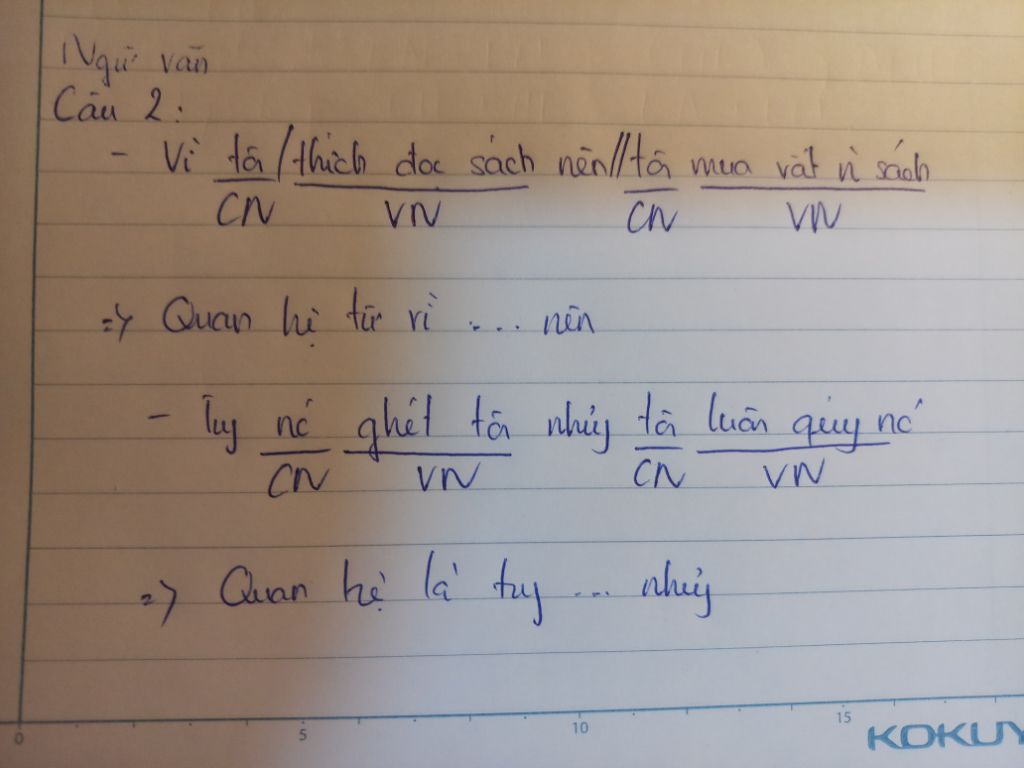 Ngữ văn
Câu 2:
- Vì tôi / thích đọc sách nên // tôi mua rất nh` sách
CN VN CN VN
=> Quan hệ từ vì .... nên
- Tuy nó ghét tôi nhưng tôi luôn qúy nó
CN VN CN VN
=> Quan hệ là tuy ... nhưng
0 5 10 15
KOKUY